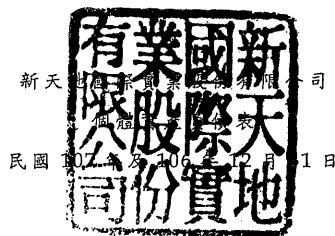 新天地國際實業股份有限公司
個體 表
民國 107 年及 106 年 12 月 31 日
新天地
國際實
業股份
有限公司